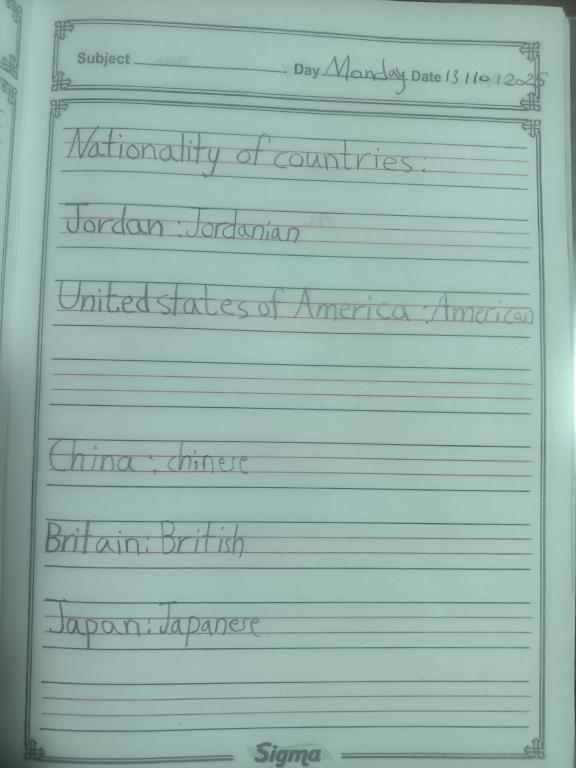 Subject Day Monday Date 13/10/2025
Nationality of countries:
Jordan : Jordanian
United states of America : American
China : chinese
Britain : British
Japan : Japanese
Sigma